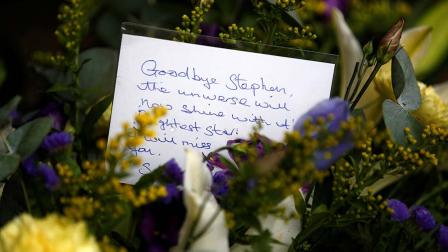 Goodbye Stephen,
the universe will
now shine with it's
brightest star.
will miss
you.
S